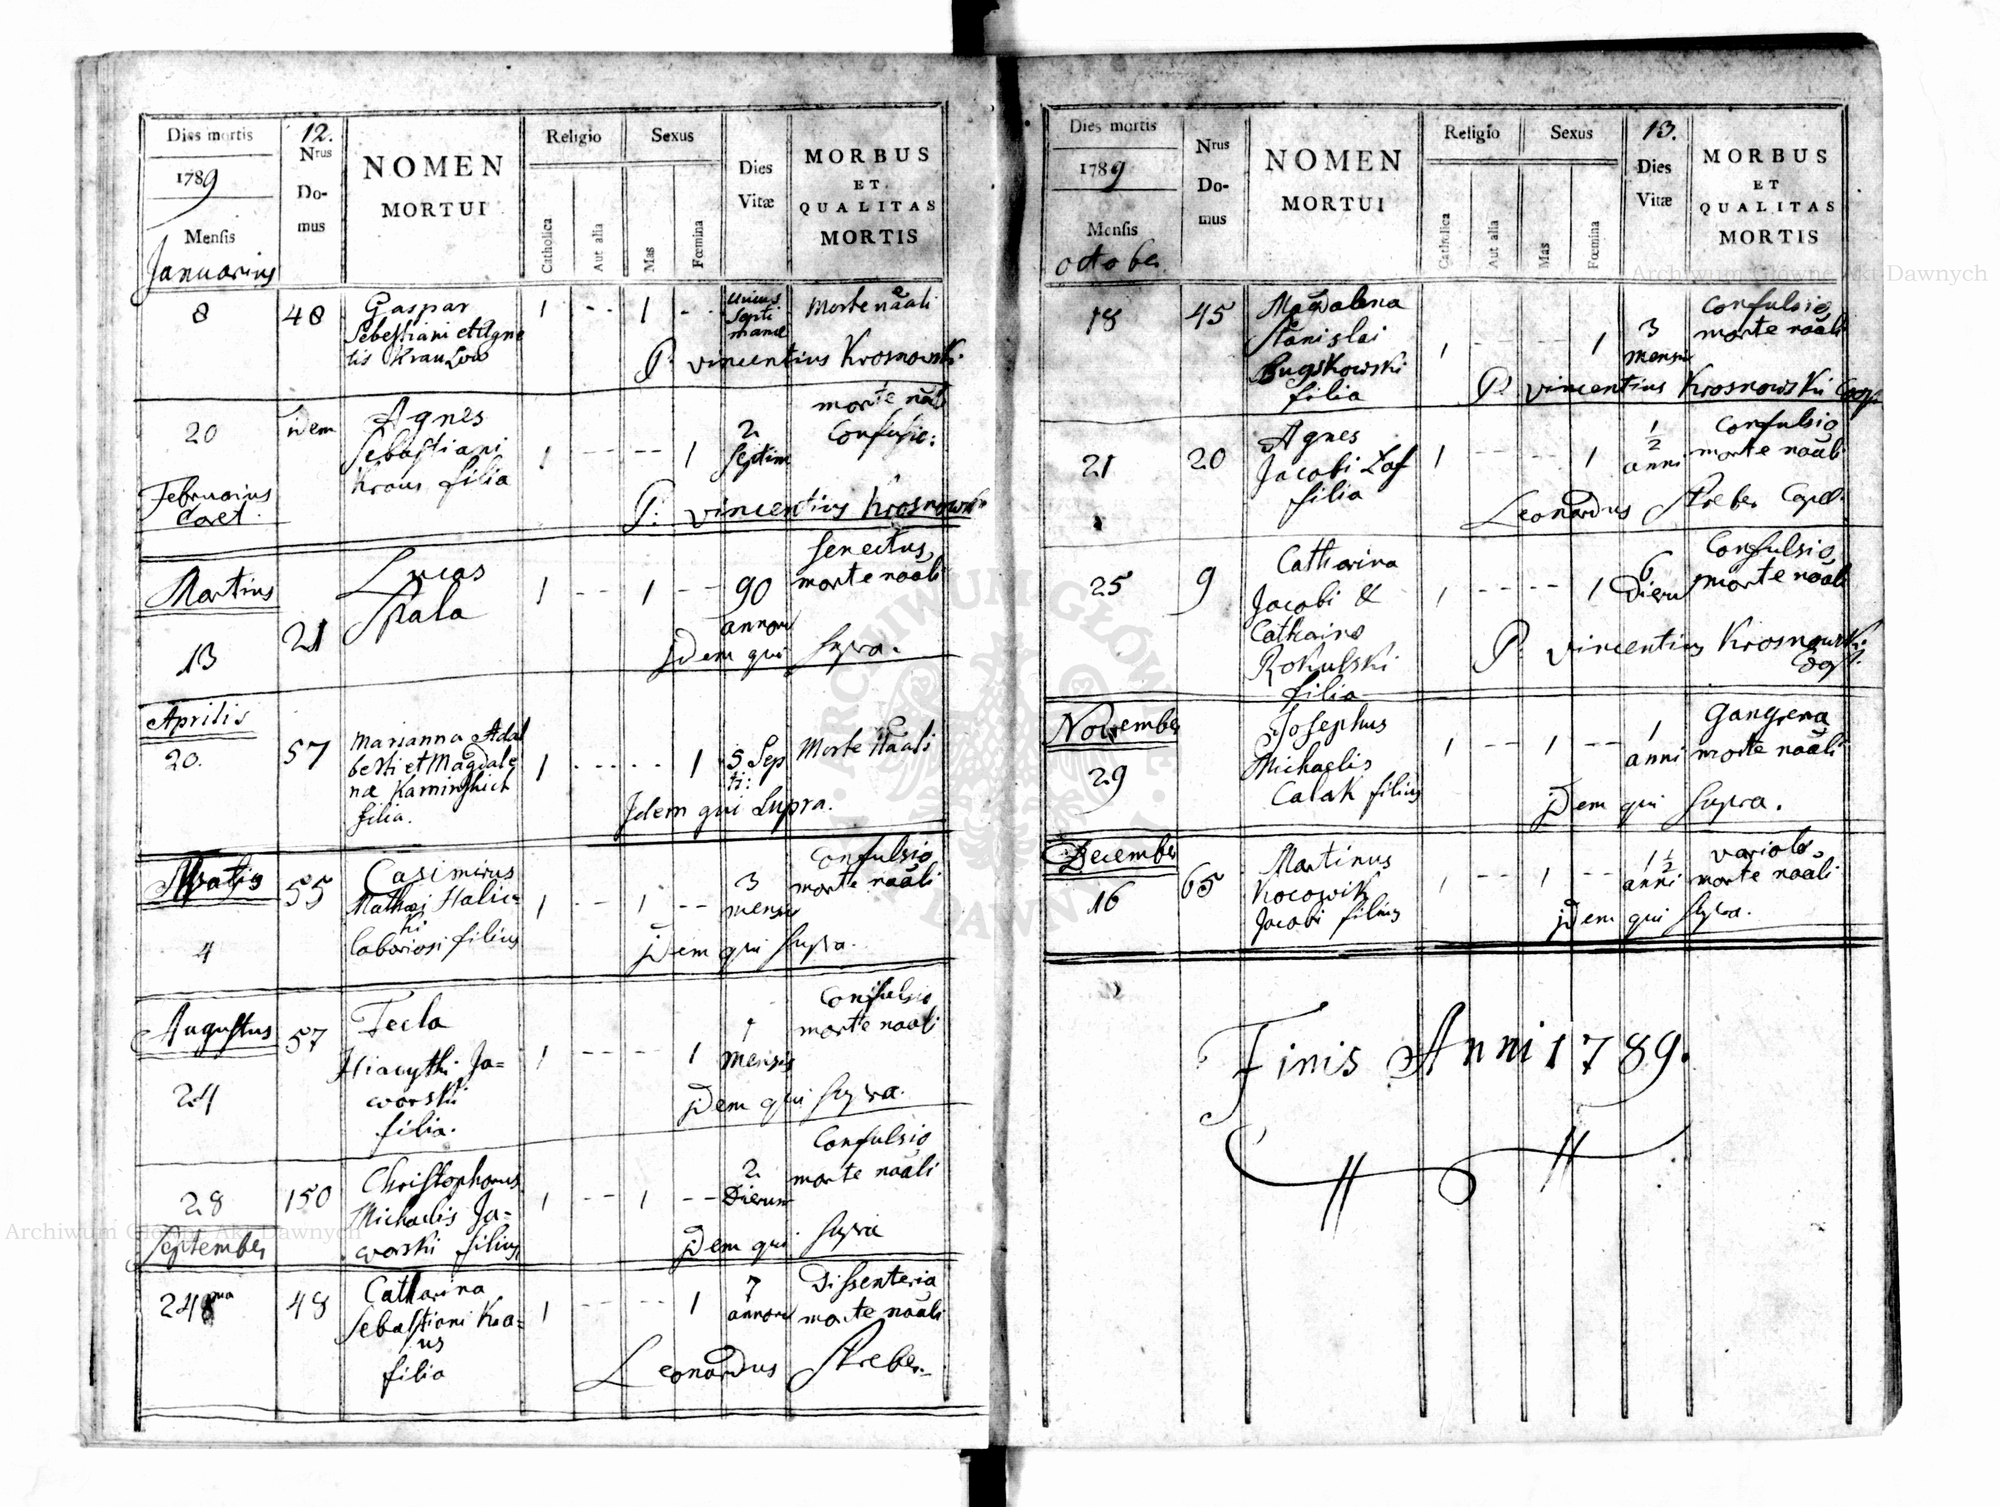 Dies mortis
1789
Mensis
Januarius
12.
Nrus
Do-
mus
NOMEN
MORTUI
Religio
Catholica
Aut alia
Sexus
Mas
Fœmina
Dies
Vitæ
MORBUS
ET
QUALITAS
MORTIS
8
48
Gaspar
Sebestiani et Agne
tis Krau
1 - - 1 - -
unius
Septi
manæ
Morte nãali
P. Vincentius Krosnowski
20
idem
Agnes
Sebastiani
Kraus filia
1 - - - - 1
2
Septim
morte nãali
Confusio:
P: Vincentius Krosnowski
Februarius
Caret.
Martius
13
21
Lucas
Skala
1 - - 1 - -
90
annoru
Senectus,
morte nãali
Idem qui Supra.
Aprilis
20.
57
Marianna Adal
berti et Magdale
næ Kaminskich
filia.
1 - - - - 1
5 Sep
ti:
Morte Nãali
Idem qui Supra.
Majus
4
55
Casimirus
Mathæi Halic=
ki
laboriosi filius
1 - - 1 - -
3
mensis
Confulsio,
morte nãali
Idem qui Supra.
Augustus
24
57
Tecla
Hiacythi Ja=
worski
filia.
1 - - - - 1
1
mensis
Confulsio,
morte nãali
Idem qui Supra.
28
150
Christophorus
Michaelis Ja=
worski filius
1 - - 1 - -
2
Dierum
Confulsio
morte nãali
Idem qui Supra
September
24
48
Catharina
Sebastiani Kra=
us
filia
1 - - - - 1
7
annoru
Dissenteria
morte nãali
Leonardus Skreber
Dies mortis
1789
Mensis
October
Nrus
Do-
mus
NOMEN
MORTUI
Religio
Catholica
Aut alia
Sexus
Mas
Fœmina
13.
Dies
Vitæ
MORBUS
ET
QUALITAS
MORTIS
18
45
Magdalena
Stanislai
Bugskowski
filia
1 - - - - 1
3
mensis
Confulsio,
morte nãali
P. Vincentius Krosnowski Coop.
21
20
Agnes
Jacobi Laf
filia
1 - - - - 1
1/2
anni
Confulsio
morte nãali
Leonardus Skreber Capell.
25
9
Catharina
Jacobi &
Catharina
Rokulski
filia
1 - - - - 1
6
Dieru
Confulsio
morte nãali
P. Vincentius Krosnowski
Coop.
November
29
Josephus
Michaelis
Calak filius
1 - - 1 - -
1
anni
Gangrena
morte nãali
Idem qui Supra.
December
16
65
Martinus
Kocowik
Jacobi filius
1 - - 1 - -
1 1/2
anni
variola,
morte nãali
Idem qui Supra.
Finis Anni 1789.
Archiwum Główne Akt Dawnych
Archiwum Główne Akt Dawnych
ARCHIWUM GŁÓWNE AKT DAWNYCH